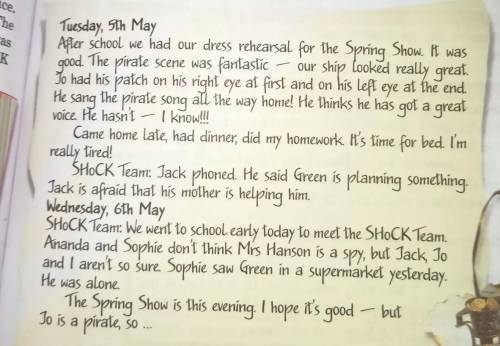 ce.
The
as
K
Tuesday, 5th May
After school we had our dress rehearsal for the Spring Show. It was
good. The pirate scene was fantastic – our ship looked really great.
Jo had his patch on his right eye at first and on his left eye at the end.
He sang the pirate song all the way home! He thinks he has got a great
voice. He hasn't – I know!!!
Came home late, had dinner, did my homework. It's time for bed. I'm
really tired!
SHoCK Team: Jack phoned. He said Green is planning something.
Jack is afraid that his mother is helping him.
Wednesday, 6th May
SHoCK Team: We went to school early today to meet the SHoCK Team.
Ananda and Sophie don't think Mrs Hanson is a spy, but Jack, Jo
and I aren't so sure. Sophie saw Green in a supermarket yesterday.
He was alone.
The Spring Show is this evening. I hope it's good – but
Jo is a pirate, so ...